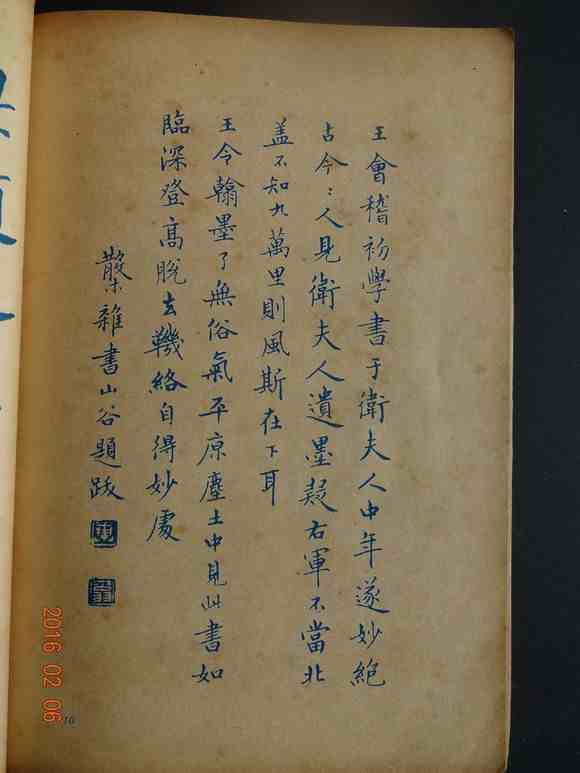 王會稽初學書于衛夫人中年遂妙絕
古今〻人見衛夫人遺墨疑右軍不當北
盖不知九萬里則風斯在下耳
王令翰墨了無俗氣平原塵土中見此書如
臨深登高脫去羈絡自得妙處
槩雜書山谷題跋
2016 02 06
10